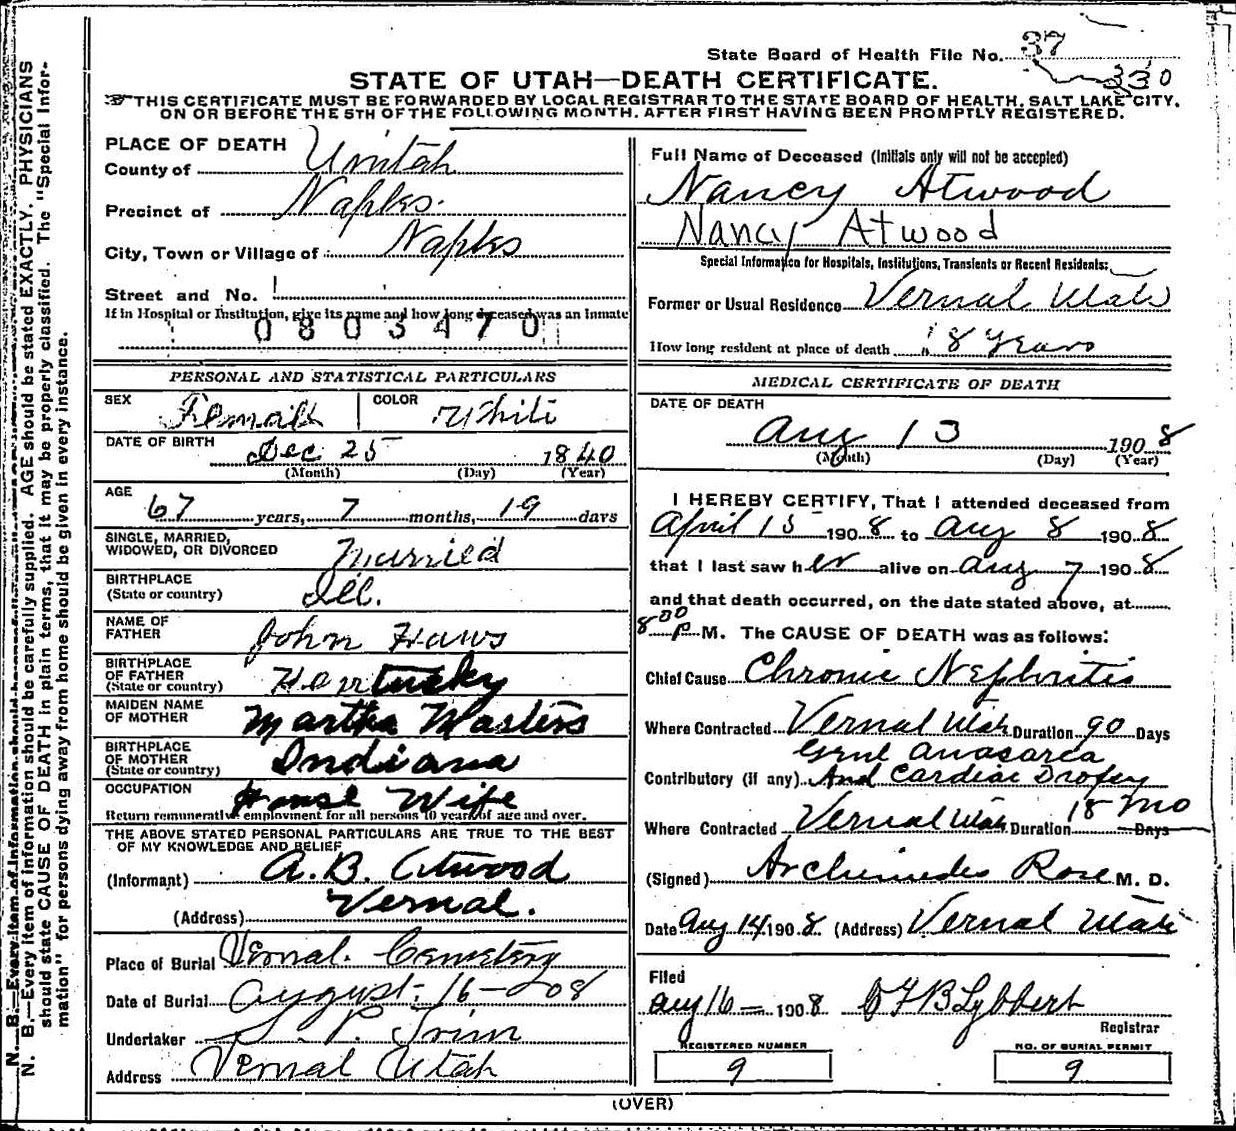 State Board of Health File No. 37
330
STATE OF UTAH—DEATH CERTIFICATE.
THIS CERTIFICATE MUST BE FORWARDED BY LOCAL REGISTRAR TO THE STATE BOARD OF HEALTH, SALT LAKE CITY,
ON OR BEFORE THE 5TH OF THE FOLLOWING MONTH, AFTER FIRST HAVING BEEN PROMPTLY REGISTERED.
N. B.—Every item of information should be carefully supplied. AGE should be stated EXACTLY. PHYSICIANS
should state CAUSE OF DEATH in plain terms, that it may be properly classified. The "Special Infor-
mation" for persons dying away from home should be given in every instance.
PLACE OF DEATH
County of Uintah
Precinct of Naples.
City, Town or Village of Naples
Street and No.
If in Hospital or Institution, give its name and how long deceased was an Inmate
0803470
PERSONAL AND STATISTICAL PARTICULARS
SEX Female
COLOR White
DATE OF BIRTH Dec 25 1840
(Month) (Day) (Year)
AGE 67 years, 7 months, 19 days
SINGLE, MARRIED,
WIDOWED, OR DIVORCED Married
BIRTHPLACE
(State or country) Ill.
NAME OF
FATHER John Haws
BIRTHPLACE
OF FATHER
(State or country) Kentucky
MAIDEN NAME
OF MOTHER Martha Masters
BIRTHPLACE
OF MOTHER
(State or country) Indiana
OCCUPATION House Wife
Return remunerative employment for all persons 10 years of age and over.
THE ABOVE STATED PERSONAL PARTICULARS ARE TRUE TO THE BEST
OF MY KNOWLEDGE AND BELIEF
(Informant) A. B. Atwood
(Address) Vernal.
Place of Burial Vernal. Cemetery
Date of Burial August. 16—08
Undertaker S. P. Trim
Address Vernal Utah
Full Name of Deceased (Initials only will not be accepted)
Nancy Atwood
Nancy Atwood
Special Information for Hospitals, Institutions, Transients or Recent Residents:
Former or Usual Residence Vernal Utah
How long resident at place of death 18 years
MEDICAL CERTIFICATE OF DEATH
DATE OF DEATH
Aug 13 1908
(Month) (Day) (Year)
I HEREBY CERTIFY, That I attended deceased from
April 15 1908 to Aug 8 1908
that I last saw her alive on Aug 7 1908
and that death occurred, on the date stated above, at
8 00 P M. The CAUSE OF DEATH was as follows:
Chief Cause Chronic Nephritis
Where Contracted Vernal Utah Duration 90 Days
Genl Anasarca
Contributory (if any) And Cardiac Dropsy
Where Contracted Vernal Utah Duration 18 mo Days
(Signed) Archimedes Rose M. D.
Date Aug 14 1908 (Address) Vernal Utah
Filed
Aug 16 — 1908 Lybbert
Registrar
REGISTERED NUMBER
9
NO. OF BURIAL PERMIT
9
(OVER)